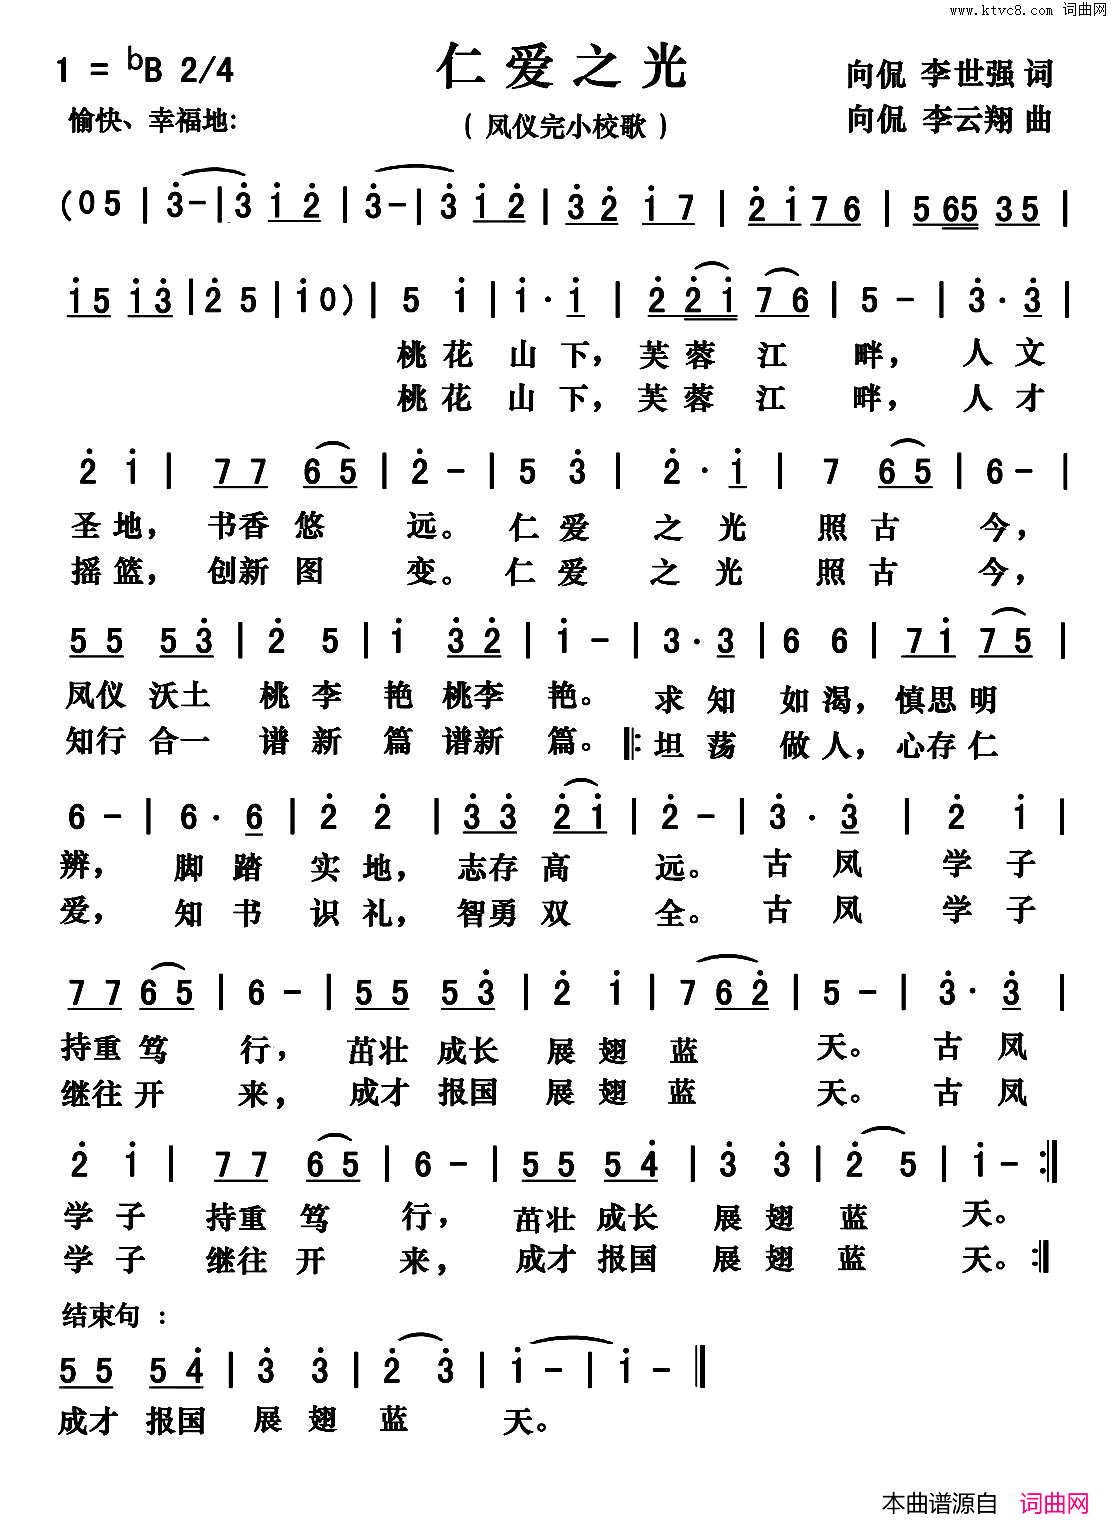 www.ktvc8.com 词曲网
1 = bB 2/4
仁爱之光
向侃 李世强 词
愉快、幸福地:
( 凤仪完小校歌 )
向侃 李云翔 曲
(0 5 | 3̇ - | 3̇ 1̇ 2̇ | 3̇ - | 3̇ 1̇ 2̇ | 3̇ 2̇ 1̇ 7 | 2̇ 1̇ 7 6 | 5 6 5 3 5 |
1̇ 5 1̇ 3̇ | 2̇ 5 | 1̇ 0) | 5 1̇ | 1̇ · 1̇ | 2̇ 2̇ 1̇ 7 6 | 5 - | 3̇ · 3̇ |
桃花山下，芙蓉江畔，人文
桃花山下，芙蓉江畔，人才
2̇ 1̇ | 7 7 6 5 | 2̇ - | 5 3̇ | 2̇ · 1̇ | 7 6 5 | 6 - |
圣地，书香悠远。仁爱之光照古今，
摇篮，创新图变。仁爱之光照古今，
5 5 5 3̇ | 2̇ 5 | 1̇ 3̇ 2̇ | 1̇ - | 3 · 3 | 6 6 | 7 1̇ 7 5 |
凤仪沃土桃李艳桃李艳。求知如渴，慎思明
知行合一谱新篇谱新篇。‖: 坦荡做人，心存仁
6 - | 6 · 6̇ | 2̇ 2̇ | 3̇ 3̇ 2̇ 1̇ | 2̇ - | 3̇ · 3̇ | 2̇ 1̇ |
辨，脚踏实地，志存高远。古凤学子
爱，知书识礼，智勇双全。古凤学子
7 7 6 5 | 6 - | 5 5 5 3̇ | 2̇ 1̇ | 7 6 2̇ | 5 - | 3̇ · 3̇ |
持重笃行，茁壮成长展翅蓝天。古凤
继往开来，成才报国展翅蓝天。古凤
2̇ 1̇ | 7 7 6 5 | 6 - | 5 5 5 4̇ | 3̇ 3̇ | 2̇ 5 | 1̇ - :‖
学子持重笃行，茁壮成长展翅蓝天。
学子继往开来，成才报国展翅蓝天。:‖
结束句：
5 5 5 4̇ | 3̇ 3̇ | 2̇ 3̇ | 1̇ - | 1̇ - ‖
成才报国展翅蓝天。
本曲谱源自 词曲网